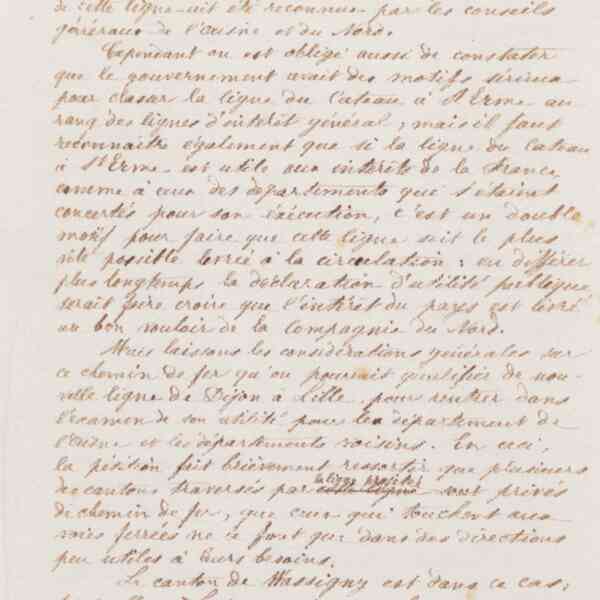 de cette ligne ait été reconnue par les conseils
généraux de l'aisne et du Nord.
Cependant on est obligé aussi de constater
que le gouvernement avait des motifs sérieux
pour classer la ligne du Cateau à St Erme au
rang des lignes d'intérêt général, mais il faut
reconnaître également que si la ligne du Cateau
à St Erme est utile aux intérêts de la France
comme à ceux des départements qui s'étaient
concertés pour son exécution, c'est un double
motif pour faire que cette ligne soit le plus
vite possible livrée à la circulation : en différer
plus longtemps la déclaration d'utilité publique
serait faire croire que l'intérêt du pays est livré
au bon vouloir de la Compagnie du Nord.
Mais laissons les considérations générales sur
ce chemin de fer qu'on pourrait qualifier de nou-
velle ligne de Dijon à Lille pour rentrer dans
l'examen de son utilité pour le département de
l'aisne et les départements voisins. En ceci,
la pétition fait brièvement ressortir que plusieurs
la ligne projetée
des cantons traversés par cette ligne sont privés
de chemin de fer, que ceux qui touchent aux
voies ferrées ne le font que dans des directions
peu utiles à leurs besoins.
Le canton de Wassigny est dans ce cas,